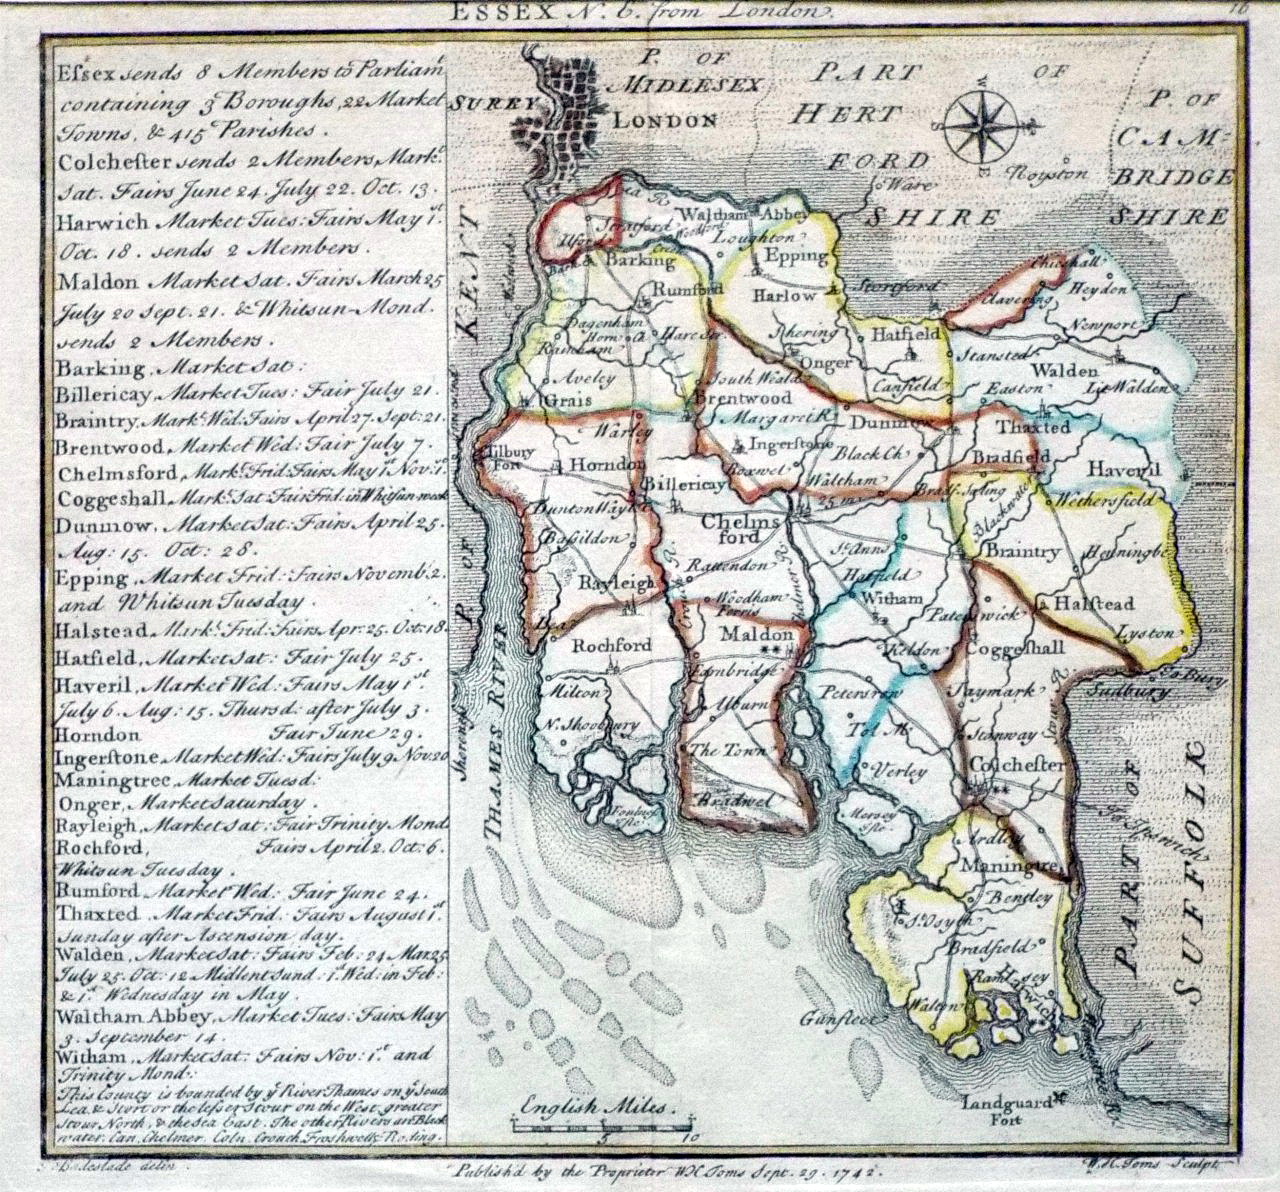 ESSEX N. E. from London.
16
Essex sends 8 Members to Parliamt
containing 3 Boroughs, 22 Market
Towns, & 415 Parishes.
Colchester sends 2 Members, Mark.t
Sat. Fairs June 24. July 22. Oct. 13.
Harwich Market Tues: Fairs May 1.st
Oct. 18. sends 2 Members.
Maldon Market Sat. Fairs March 25
July 20 Sept. 21. & Whitsun-Mond.
sends 2 Members.
Barking, Market Sat:
Billericay, Market Tues: Fair July 21.
Braintry, Mark.t Wed: Fairs April 27. Sept: 21.
Brentwood, Market Wed: Fair July 7.
Chelmsford, Mark.t Frid: Fairs May 1. Nov: 1.st
Coggeshall, Mark.t Sat Fair Frid. in Whitsun week
Dunmow, Market Sat: Fairs April 25.
Aug: 15. Oct: 28.
Epping, Market Frid: Fairs Novemb: 2.
and Whitsun Tuesday.
Halstead, Mark.t Frid: Fairs Apr: 25. Oct: 18.
Hatfield, Market Sat: Fair July 25.
Haveril, Market Wed: Fairs May 1.st
July 6. Aug: 15. Thursd: after July 3.
Horndon Fair June 29.
Ingerstone, Market Wed: Fairs July 9 Nov: 20
Maningtree, Market Tuesd:
Onger, Market Saturday.
Rayleigh, Market Sat: Fair Trinity Mond.
Rochford, Fairs April 2. Oct: 6.
Whitsun Tuesday.
Rumford Market Wed: Fair June 24.
Thaxted, Market Frid: Fairs August 1.st
Sunday after Ascension day.
Walden, Market Sat: Fairs Feb: 24 Mar: 25
July 25. Oct: 12 Midlent Sund: 1. Wed: in Feb:
& 1.st Wednesday in May.
Waltham Abbey, Market Tues: Fairs May
3. September 14.
Witham, Market Sat: Fairs Nov: 1.st and
Trinity Mond:
This County is bounded by y.e River Thames on y.e South
Lea & Stort or the lesser Stour on the West, greater
Stour North, & the Sea East. The other Rivers are Black
water, Can, Chelmer, Coln, Crouch, Froshwell & Roding.
P. OF
MIDLESEX
PART OF
HERT
FORD
SHIRE
P. OF
CAM-
BRIDGE
SHIRE
SURRY
LONDON
Ware
Royston
KENT
P. OF
THAMES RIVER
PART OF
SUFFOLK
Lea R.
Stratford
Waltham Abbey
Woodford
Loughton
Ilford
Barking
Epping
Rumford
Harlow
Stortford
Chishall
Heydon
Clavering
Newport
Dagenham
Horn Ch
Hare Str
Rainham
Shering
Hatfield
Onger
Stansted
Walden
Lit Walden
Aveley
South Weald
Canfield
Easton
Grais
Brentwood
Margaret R.
Dunmow
Thaxted
Warley
Tilbury
Fort
Horndon
Ingerstone
Black Ch
Bradfield
Haveril
Boxwel
Waltham
Bradf. Saling
Billericay
25 m.
Wethersfield
Dunton Waylet
Chelms
ford
Blackwater
Basildon
St. Anns
Braintry
Henningham
Rayleigh
Rattendon
Hatfield
Witham
Halstead
Woodham
Ferris
Pateswick
Lyston
Rochford
Maldon
Keldon
Coggeshall
To Bury
Fambridge
Sudbury
Milton
Alburn
Saymark
N. Shoobury
Tol M.
Stanway
The Town
Verley
Colchester
Bradwel
Mersey
Isle
To Ipswich
Ardley
Maningtre
Bentley
St. Osyth
Bradfield
Ramsey
Harwich
Walton
Gunfleet
Landguard
Fort
English Miles.
5 10
Badeslade delin.
Publish'd by the Proprietor W.H. Toms Sept. 29. 1742.
W.H. Toms Sculpt.